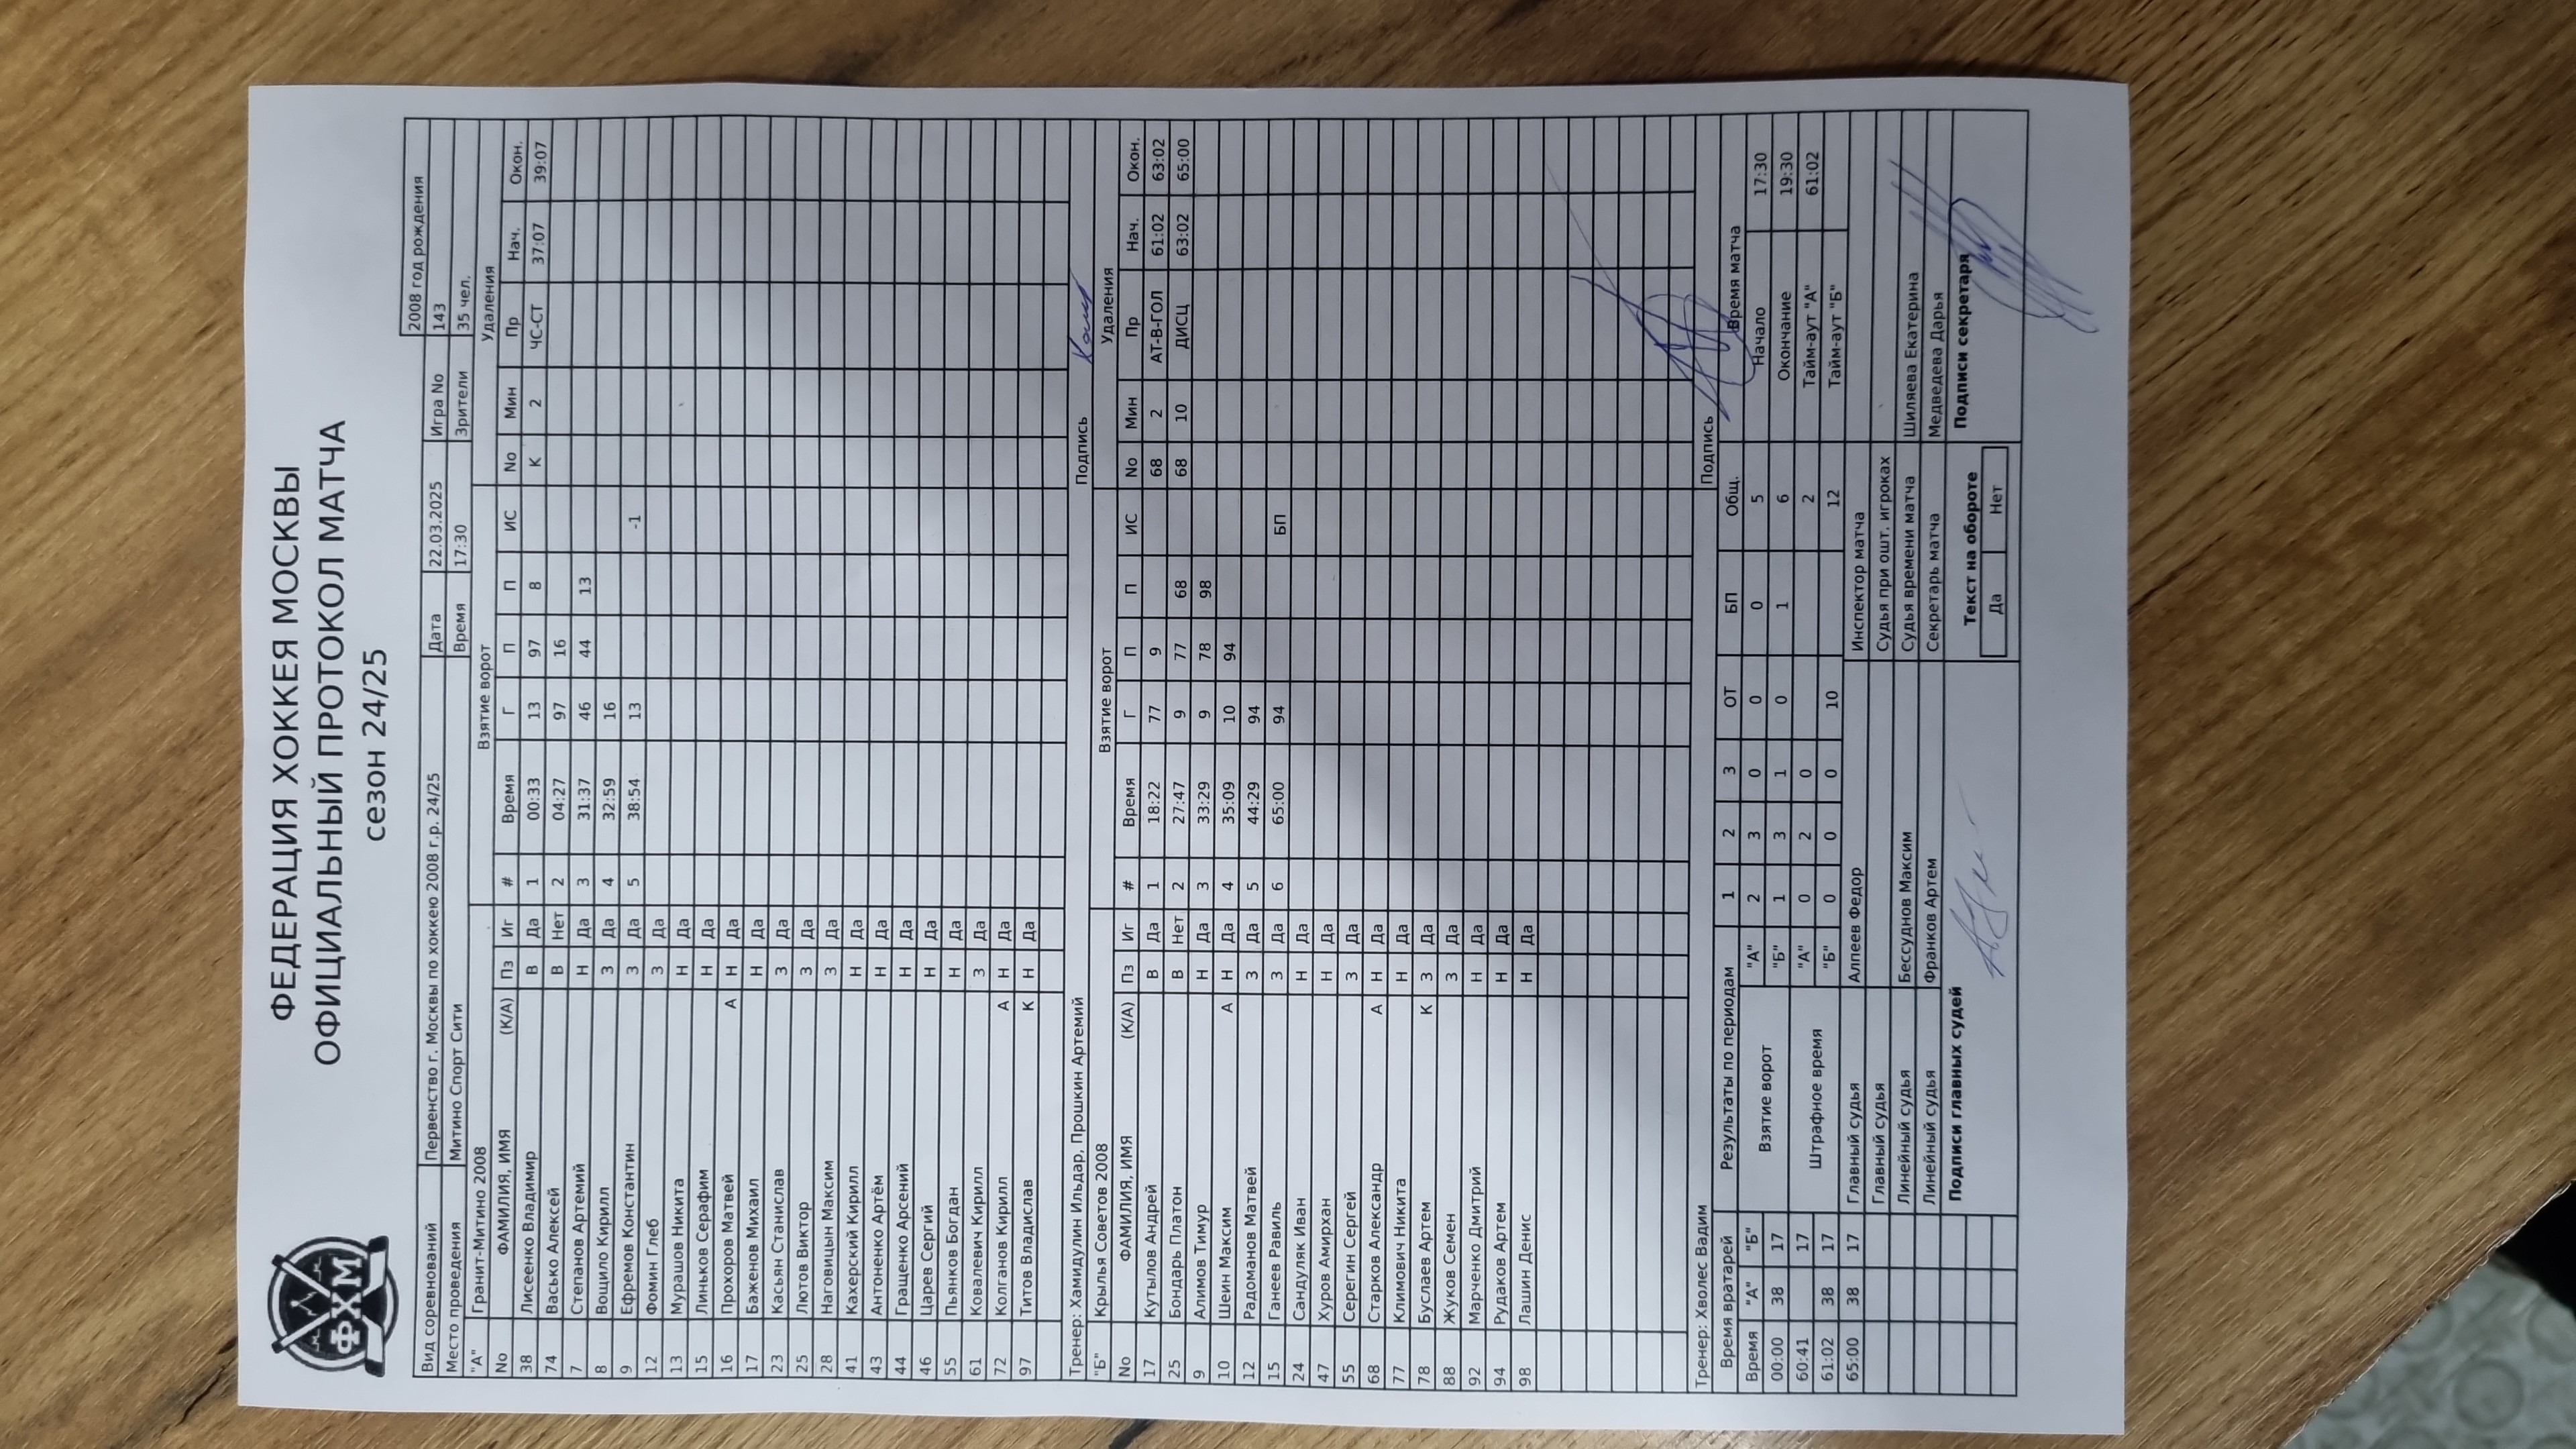 ФХМ
ФЕДЕРАЦИЯ ХОККЕЯ МОСКВЫ
ОФИЦИАЛЬНЫЙ ПРОТОКОЛ МАТЧА
сезон 24/25
2008 год рождения
Вид соревнований Первенство г. Москвы по хоккею 2008 г.р. 24/25 Дата 22.03.2025 Игра No 143
Место проведения Митино Спорт Сити Время 17:30 Зрители 35 чел.
"А" Гранит-Митино 2008 Взятие ворот Удаления
No ФАМИЛИЯ, ИМЯ (К/А) Пз Иг # Время Г П П ИС No Мин Пр Нач. Окон.
38 Лисеенко Владимир В Да 1 00:33 13 97 8 К 2 ЧС-СТ 37:07 39:07
74 Васько Алексей В Нет 2 04:27 97 16
7 Степанов Артемий Н Да 3 31:37 46 44 13
8 Вощило Кирилл З Да 4 32:59 16
9 Ефремов Константин З Да 5 38:54 13 -1
12 Фомин Глеб З Да
13 Мурашов Никита Н Да
15 Линьков Серафим Н Да
16 Прохоров Матвей А Н Да
17 Баженов Михаил Н Да
23 Касьян Станислав З Да
25 Лютов Виктор З Да
28 Наговицын Максим З Да
41 Кахерский Кирилл Н Да
43 Антоненко Артём Н Да
44 Гращенко Арсений Н Да
46 Царев Сергий Н Да
55 Пьянков Богдан Н Да
61 Ковалевич Кирилл З Да
72 Колганов Кирилл А Н Да
97 Титов Владислав К Н Да
Тренер: Хамидулин Ильдар, Прошкин Артемий Подпись
"Б" Крылья Советов 2008 Взятие ворот Удаления
No ФАМИЛИЯ, ИМЯ (К/А) Пз Иг # Время Г П П ИС No Мин Пр Нач. Окон.
17 Кутылов Андрей В Да 1 18:22 77 9 68 2 АТ-В-ГОЛ 61:02 63:02
25 Бондарь Платон В Нет 2 27:47 9 77 68 68 10 ДИСЦ 63:02 65:00
9 Алимов Тимур Н Да 3 33:29 9 78 98
10 Шеин Максим А Н Да 4 35:09 10 94
12 Радоманов Матвей З Да 5 44:29 94
15 Ганеев Равиль З Да 6 65:00 94 БП
24 Сандуляк Иван Н Да
47 Хуров Амирхан Н Да
55 Серегин Сергей З Да
68 Старков Александр А Н Да
77 Климович Никита Н Да
78 Буслаев Артем К З Да
88 Жуков Семен З Да
92 Марченко Дмитрий Н Да
94 Рудаков Артем Н Да
98 Лашин Денис Н Да
Тренер: Хволес Вадим Подпись
Время вратарей Результаты по периодам 1 2 3 ОТ БП Общ. Время матча
Время "А" "Б" Взятие ворот "А" 2 3 0 0 0 5 Начало 17:30
00:00 38 17 "Б" 1 3 1 0 1 6 Окончание 19:30
60:41 17 Штрафное время "А" 0 2 0 2 Тайм-аут "А" 61:02
61:02 38 17 "Б" 0 0 0 10 12 Тайм-аут "Б"
65:00 38 17 Главный судья Алпеев Федор Инспектор матча
Главный судья Судья при ошт. игроках
Линейный судья Бессуднов Максим Судья времени матча Шиляева Екатерина
Линейный судья Франков Артем Секретарь матча Медведева Дарья
Подписи главных судей Текст на обороте Подписи секретаря
Да Нет